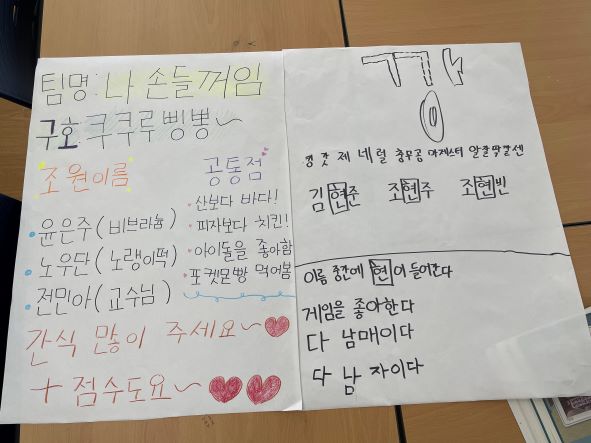 팀명: 나 손들꺼임
구호: 쿠쿠루 삥뽕~
조원이름
윤은주(비브라늄)
노우단(노랭이떡)
전민아(교수님)
공통점
산보다 바다!
피자보다 치킨!
아이돌을 좋아함
포켓몬빵 먹어봄
간식 많이 주세요~
+ 점수도요~
깡
킹 갓 제 네 럴 충무공 마제스터 알잘딱깔센
김현준 조현주 조현빈
이름 중간에 현이 들어간다
게임을 좋아한다
다 남매이다
다 남자이다